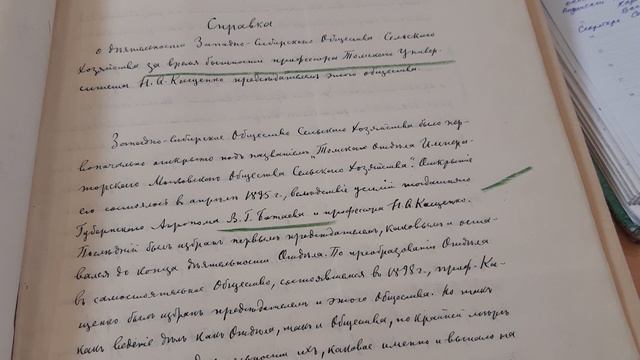 Справка
о дѣятельности Западно-Сибирскаго Общества Сельскаго
Хозяйства за время бытности профессора Томскаго Универ-
ситета Н. Ѳ. Кащенко предсѣдателемъ этого общества.
Западно-Сибирское Общество Сельскаго Хозяйства было пер-
воначально открыто подъ названіемъ „Томскаго Отдѣла Импера-
торскаго Московскаго Общества Сельскаго Хозяйства". Открытіе
его состоялось в апрѣлѣ 1895 г., вслѣдствіе усилій тогдашняго
Губернскаго Агронома В. Г. и профессора Н. Ѳ. Кащенко.
Послѣдній былъ избранъ первымъ предсѣдателемъ, каковымъ и оста-
вался до конца дѣятельности Отдѣла. По преобразованіи Отдѣла
въ самостоятельное Общество, состоявшемся в 1898 г., проф. Ка-
щенко былъ избранъ предсѣдателемъ и этого Общества. Но такъ
какъ веденіе дѣлъ какъ Отдѣла, такъ и Общества, по крайней мѣрѣ
дѣятельности ихъ, каковое именно и выпало на
Секретарь